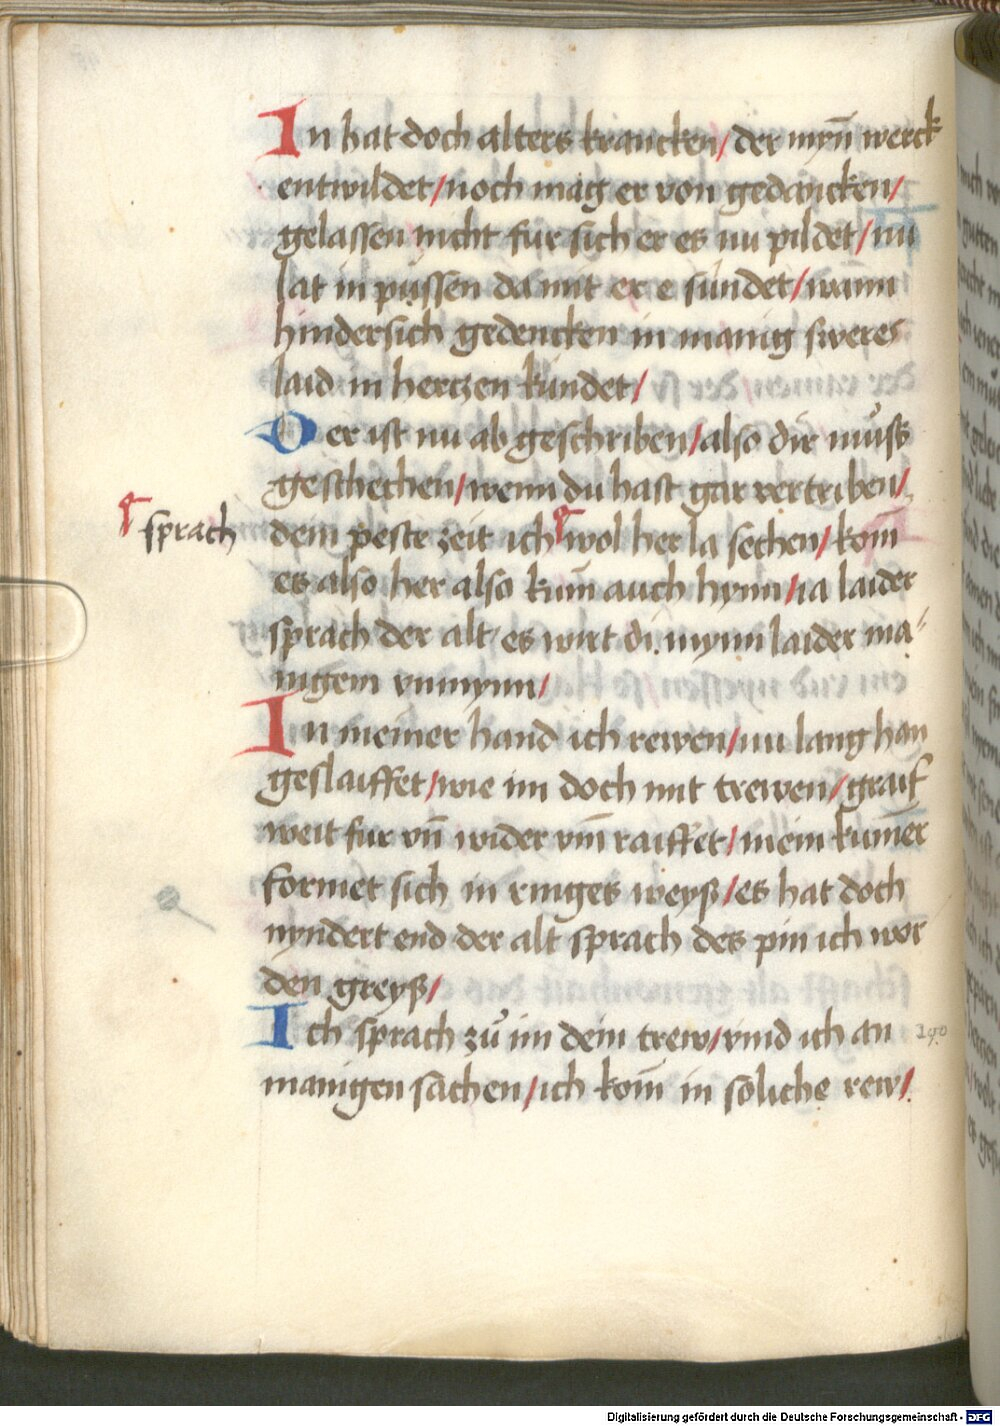 In hat doch alters krancken / der mȳn werck
entwildet / noch mag er von gedancken /
gelassen nicht fur sich er es nu pildet / nu
lat in pussen da mit er e sundet / wann
hindersich gedencken in manig sweres
laid in hertzen kundet /
Der ist nu ab geschriben / also dir můss
geschechen / wenn du hast gar vertriben /
sprach
dein peste zeit ich wol her la sechen / kom̄
es also her also kum̄ auch hynn / ia laider
sprach der alt es wirt di mynn laider ma-
nigem vnmynn /
In meiner hand ich rewen / nu lang han
geslaiffet / wie im doch mit trewen / graif
weit fur vn̄ wider vm̄ raiffet / mein kum̄er
formet sich in ringes weyß / es hat doch
nyndert end der alt sprach des pin ich wor
den greyß /
Ich sprach zů im dein trew / vind ich an
190
manigen sachen / ich kom̄ in soliche rew /
Digitalisierung gefördert durch die Deutsche Forschungsgemeinschaft - DFG